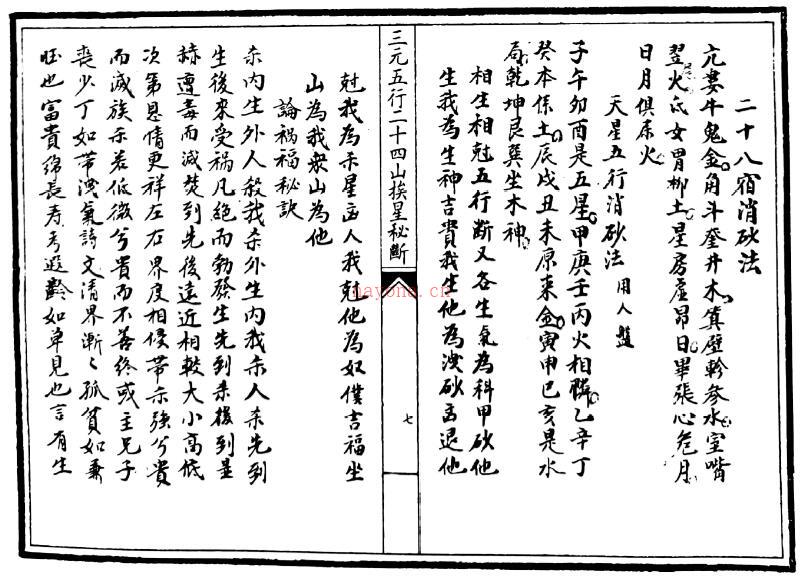 二十八宿消砂法
亢娄牛鬼金角斗奎井木箕壁軫参水室嘴
翌火氐女胃柳土星房虛昴日畢張心危月
日月俱属火
天星五行消砂法 用人盤
子午卯酉是五星甲庚壬丙火相聯乙辛丁
癸本係土辰戌丑未原来金寅申巳亥是水
局乾坤艮巽坐木神
相生相尅五行断又名生氣為科甲砂他
生我為生神吉貴我生他為洩砂凶退他
三元五行二十四山挨星秘断
七
尅我為杀星凶人我尅他為奴僕吉福坐
山為我衆山為他
論禍福秘訣
杀内生外人殺我杀外生内我杀人杀先到
生後来受禍凡絶而勃發生先到杀後到显
赫遭毒而滅焚到先後遠近相較大小高低
次第恩情更祥左右界度相侵带杀强兮貴
而滅族杀若低微兮貴而不善终或主兄子
喪少丁如带洩氣詩文清界漸々孤貧如兼
旺也富貴綿長寿考遐齡如单見也言有生
nayona.cn